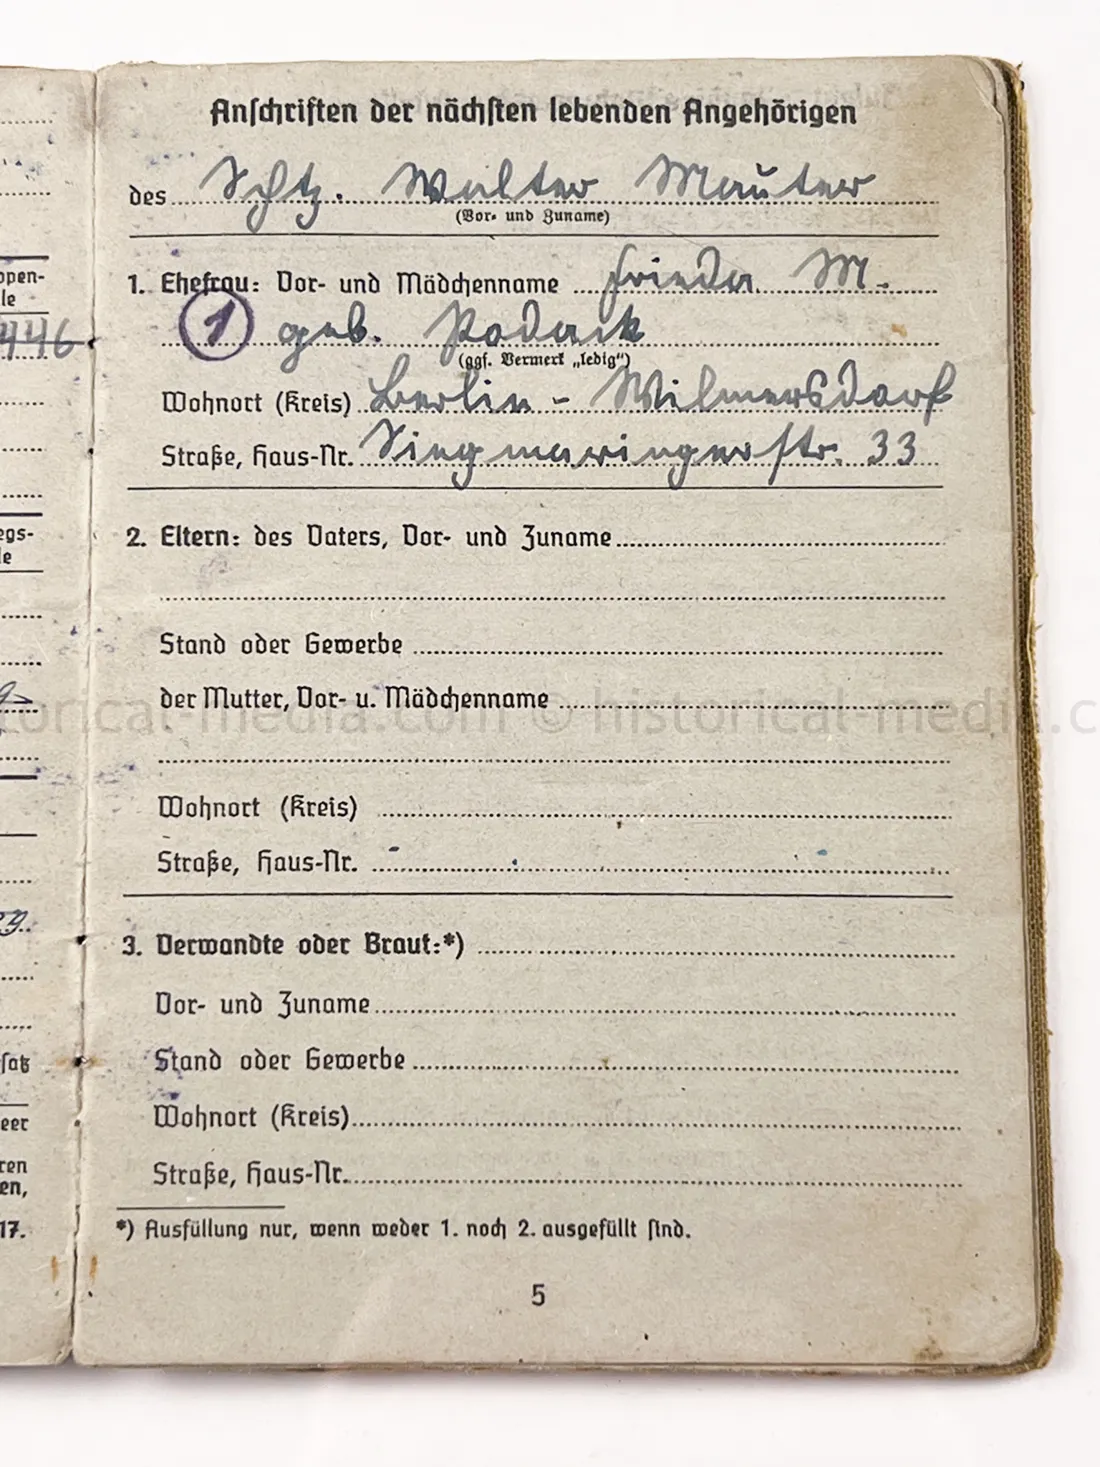 Anschriften der nächsten lebenden Angehörigen
des Schtz. Walter Mauter
(Vor- und Zuname)
1. Ehefrau: Vor- und Mädchenname Frieda M.
1 geb. Podack
(ggf. Vermerk „ledig“)
Wohnort (Kreis) Berlin - Wilmersdorf
Straße, Haus-Nr. Siegmaringerstr. 33
2. Eltern: des Vaters, Vor- und Zuname
Stand oder Gewerbe
der Mutter, Vor- u. Mädchenname
Wohnort (Kreis)
Straße, Haus-Nr.
3. Verwandte oder Braut:*)
Vor- und Zuname
Stand oder Gewerbe
Wohnort (Kreis)
Straße, Haus-Nr.
*) Ausfüllung nur, wenn weder 1. noch 2. ausgefüllt sind.
5
ppen-
le
446
egs-
le
satz
eer
ren
en,
17.
torical-media.com © historical-media.c